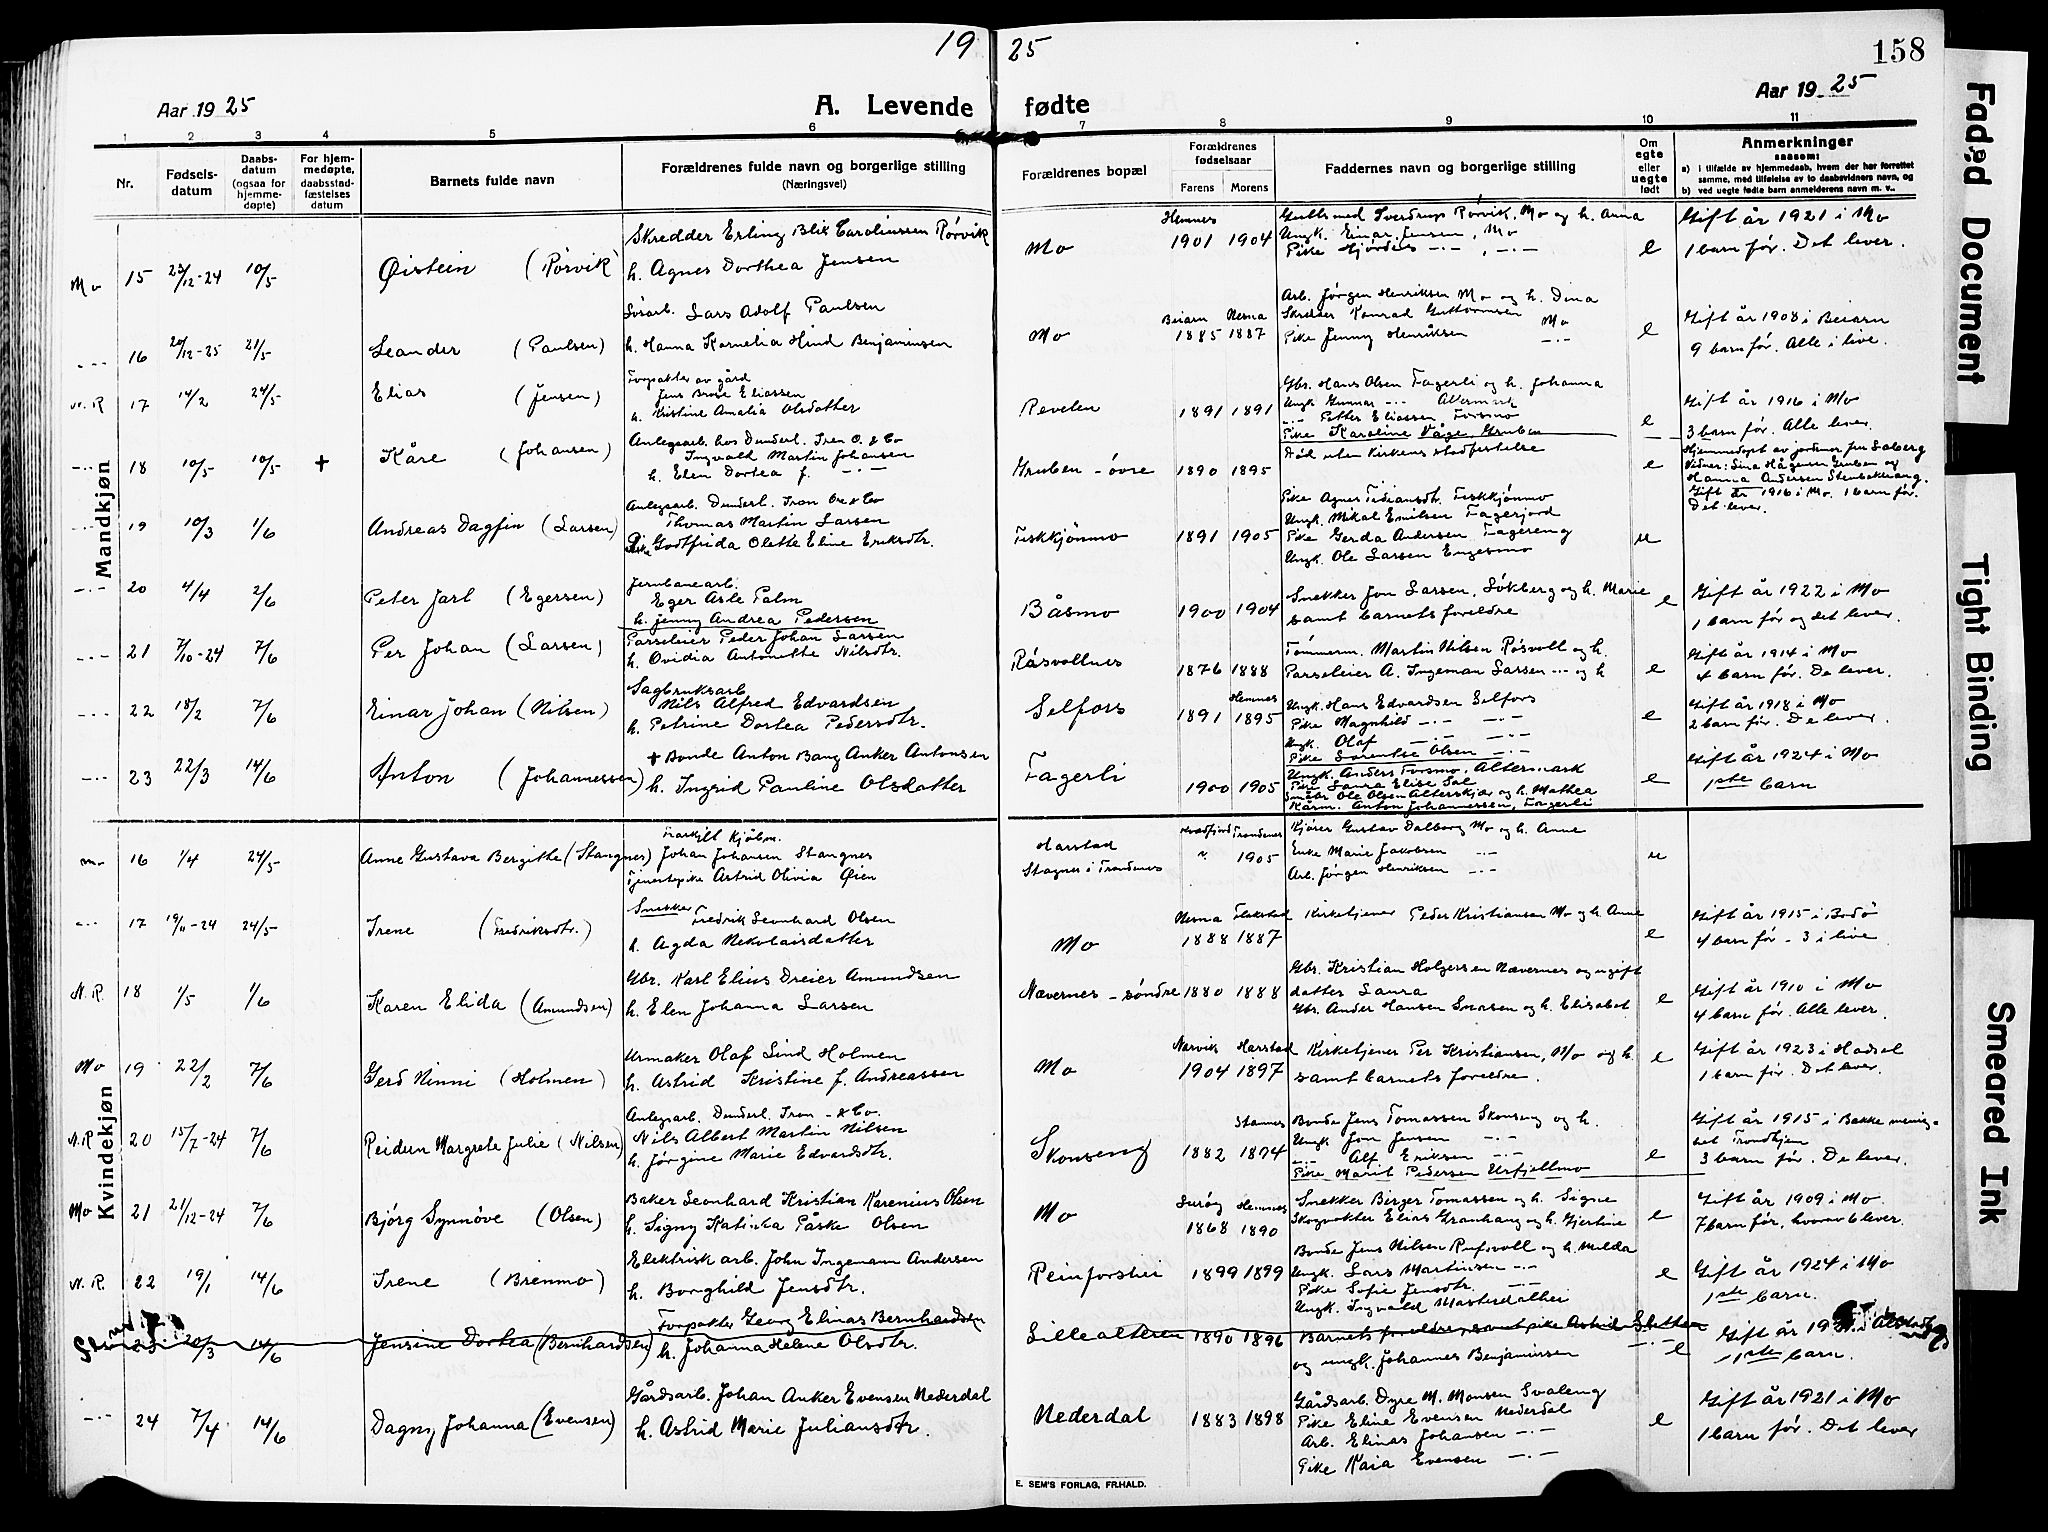 19 25
158
Aar 1925
A. Levende fødte
Aar 1925
1 2 3 4 5 6 7 8 9 10 11
Nr.
Fødsels-
datum
Daabs-
datum
(ogsaa for
hjemme-
døpte)
For hjem-
medøpte,
daabsstad-
fæstelses
datum
Barnets fulde navn
Forældrenes fulde navn og borgerlige stilling
(Næringsvei)
Forældrenes bopæl
Forældrenes
fødselsaar
Farens Morens
Faddernes navn og borgerlige stilling
Om
egte
eller
uegte
født
Anmerkninger
saasom:
a) i tilfælde av hjemmedaab, hvem der har forrettet
samme, med tilføielse av to daabsvidners navn, og
b) ved uegte fødte barn anmelderens navn m. v..
Mandkjøn
Mo 15 23/12-24 10/5 Øistein (Rørvik)
Skredder Erling Blik Carolinssen Rørvik
h. Agnes Dorthea Jensen
Mo Hemnes 1901 1904
Gullsmed Sverdrup Rørvik, Mo og h. Anna
Ungk. Einar Jensen, Mo
Pike Hjørdis -·- , -·-
e
Gift år 1921 i Mo
1 barn før. Det lever.
-·- 16 20/12-25 21/5 Leander (Paulsen)
Lars Adolf Paulsen
h. Hanna Kornelia Hind Benjaminsen
Mo Beiarn 1885 Nesna 1887
Arb. Jørgen Henriksen Mo og h. Dina
Skredder Konrad Guttormsen Mo
Pike Jenny Henriksen -·-
e
Gift år 1908 i Beiarn
9 barn før. Alle i live.
N. R 17 14/2 24/5 Elias (Jensen)
Forpakter av gård
Jens Brose Eliassen
h. Kristine Amalia Olsdatter
Revelen 1891 1891
Gbr. Hans Olsen Fagerli og h. Johanna
Ungk. Gunnar -·- Altermark
-·- Petter Eliassen Forsmo
Pike Karoline Våge, Gruben
e
Gift år 1916 i Mo
3 barn før. Alle lever.
-·- 18 10/5 10/5 + Kåre (Johansen)
Anlegsarb. hos Dunderl. Iren O. & Co
Ingvald Martin Johansen
h. Elen Dortea f. -·-
Gruben - øvre 1890 1895
Død uten Kirkens stadfestelse
e
Hjemmedøpt av jordmor fru Soberg
Vidner: Lina Hågensen Gruben og
Hanna Andersen Stenbekhaug.
Gift år 1916 i Mo. 1 barn før.
Det lever.
-·- 19 10/3 1/6 Andreas Dagfin (Larsen)
Anlegsarb. Dunderl. Iron Ore & Co
Thomas Martin Larsen
Pike Godtfrida Olette Eline Eriksdtr.
Fiskkjønmo 1891 1905
Pike Agnes Tidiansdtr. Fiskkjønmo
Ungk. Mikal Emilsen Fagerjord
Pike Gerda Andersen Fagereng
Ungk. Ole Larsen Engesmo
u
-·- 20 4/4 2/6 Peter Jarl (Egersen)
Jernbanearb.
Eger Asle Palm
h. Jenny Andrea Pedersen
Båsmo 1900 1904
Snekker Jon Larsen, Søkberg og h. Marie
samt barnets foreldre
e
Gift år 1922 i Mo
1 barn før og det lever.
-·- 21 7/10-24 7/6 Per Johan (Larsen)
Parseleier Peder Johan Larsen
h. Ovidia Antonette Nilsdtr.
Råsvollnes 1876 1888
Tømmerm. Martin Nilsen Røsvoll og h.
Parseleier A. Ingeman Larsen -·- og h
e
Gift år 1914 i Mo
4 barn før. De lever.
-·- 22 18/2 7/6 Einar Johan (Nilsen)
Sagbruksarb
Nils Alfred Edvardsen
h. Petrine Dortea Pedersdtr.
Selfors 1891 Hemnes 1895
Ungk. Hans Edvardsen Selfors
Pike Magnhild -·- -·-
Ungk. Olaf -·- -·-
Pike Sørentse Olsen -·-
e
Gift år 1918 i Mo
2 barn før. De lever.
-·- 23 22/3 14/6 Anton (Johannessen)
+ Bonde Anton Bang Anker Antonsen
h. Ingrid Pauline Olsdatter
Fagerli 1900 1905
Ungk. Anders Forsmo, Altermark
Pike Laura Elise Sal
Småbr Ole Olsen Alterskjær og h. Mathea
Kårm. Anton Johannessen, Fagerli
e
Gift år 1924 i Mo
1ste barn
Kvindekjøn
Mo 16 1/4 24/5 Anne Gustava Bergithe (Stangnes)
Fraskilt Kjøbm.
Johan Johansen Stangnes
Tjenestepike Astrid Olivia Øien
Harstad
Stagnes i Trondenes
Kvæfjord Trondenes 1905
Kjører Gustav Dalborg Mo og h. Anne
Enke Marie Jakobsen -·-
Arb. Jørgen Henriksen -·-
u
-·- 17 19/11-24 24/5 Irene (Fredriksdtr.)
Snekker
Fredrik Leonhard Olsen
h. Agda Nekolaisdatter
Mo Nesna 1888 Flakstad 1887
Kirketjener Peder Kristiansen Mo og h. Anne
e
Gift år 1915 i Bodø
4 barn før - 3 i live
N. R. 18 1/5 1/6 Karen Elida (Amundsen)
Gbr. Karl Elius Dreier Amundsen
h. Elen Johanna Larsen
Nævernes - søndre 1880 1888
Gbr. Kristian Holgersen Nævernes og ugift
datter Laura
Gbr. Ander Hansen Snøsen og h. Elisabet
e
Gift år 1910 i Mo
4 barn før. Alle lever.
Mo 19 22/2 7/6 Gerd Ninni (Holmen)
Urmaker Olaf Lind Holmen
h. Astrid Kristine f. Andreassen
Mo Narvik 1904 Harstad 1897
Kirketjener Per Kristiansen, Mo og h.
samt barnets foreldre.
e
Gift år 1923 i Hadsel
1 barn før. Det lever.
N. R 20 15/7-24 7/6 Reidun Margrete Julie (Nilsen)
Anlegsarb. Dunderl. Iron - & Co.
Nils Albert Martin Nilsen
h. Jørgine Marie Edvardsdtr.
Skonseng 1882 Stamnes 1874
Bonde Jens Tomassen Skonseng og h.
Ungk Jon Jensen -·-
-·- Alf Eriksen -·-
Pike Marit Pedersen Urfjellmo
e
Gift år 1915 i Bakke menig-
het Trondhjem
3 barn før. De lever.
Mo 21 21/12-24 7/6 Bjørg Synnøve (Olsen)
Baker Leonhard Kristian Karenius Olsen
h. Signy Katinka Påske Olsen
Mo 1868 Hemnes 1890
Snekker Birger Tomassen og h. Signe
Skogvokter Elias Granhaug og h. Gjertine
e
Gift år 1909 i Mo
7 barn før, hvorav 6 lever.
N. R. 22 19/1 14/6 Irene (Brenmo)
Elektrisk arb. John Ingemann Andersen
h. Borghild Jensdtr.
Reinforshei 1899 1899
Bonde Jens Nilsen Rufsvoll og h. Milda
Ungk. Lars Martinsen -·-
Pike Sofie Jensdtr. -·-
Ungk. Ingvald Masterdalhei
e
Gift år 1924 i Mo
1ste barn.
23 20/3 14/6 Jensine Dortea (Bernhardsen)
Forpakter Georg Elinas Bernhardsen
h. Johanna Helene Olsdtr.
Lillealteren 1890 1896
Barnets foreldre, samt pike Astrid Sletten
og ungk. Johannes Benjaminsen -·-
e
1ste barn.
-·- 24 7/4 14/6 Dagny Johanna (Evensen)
Gårdsarb. Johan Anker Evensen Nederdal
h. Astrid Marie Juliansdtr.
Nederdal 1883 1898
Gårdsarb. Dyre M. Monsen Svaleng
Pike Eline Evensen Nederdal
Arb. Elinas Johansen -·-
Pike Kaia Evensen -·-
e
Gift år 1921 i Mo
1 barn før. Det lever
E. SEM'S FORLAG, FR.HALD.
Faded Document
Tight Binding
Smeared Ink